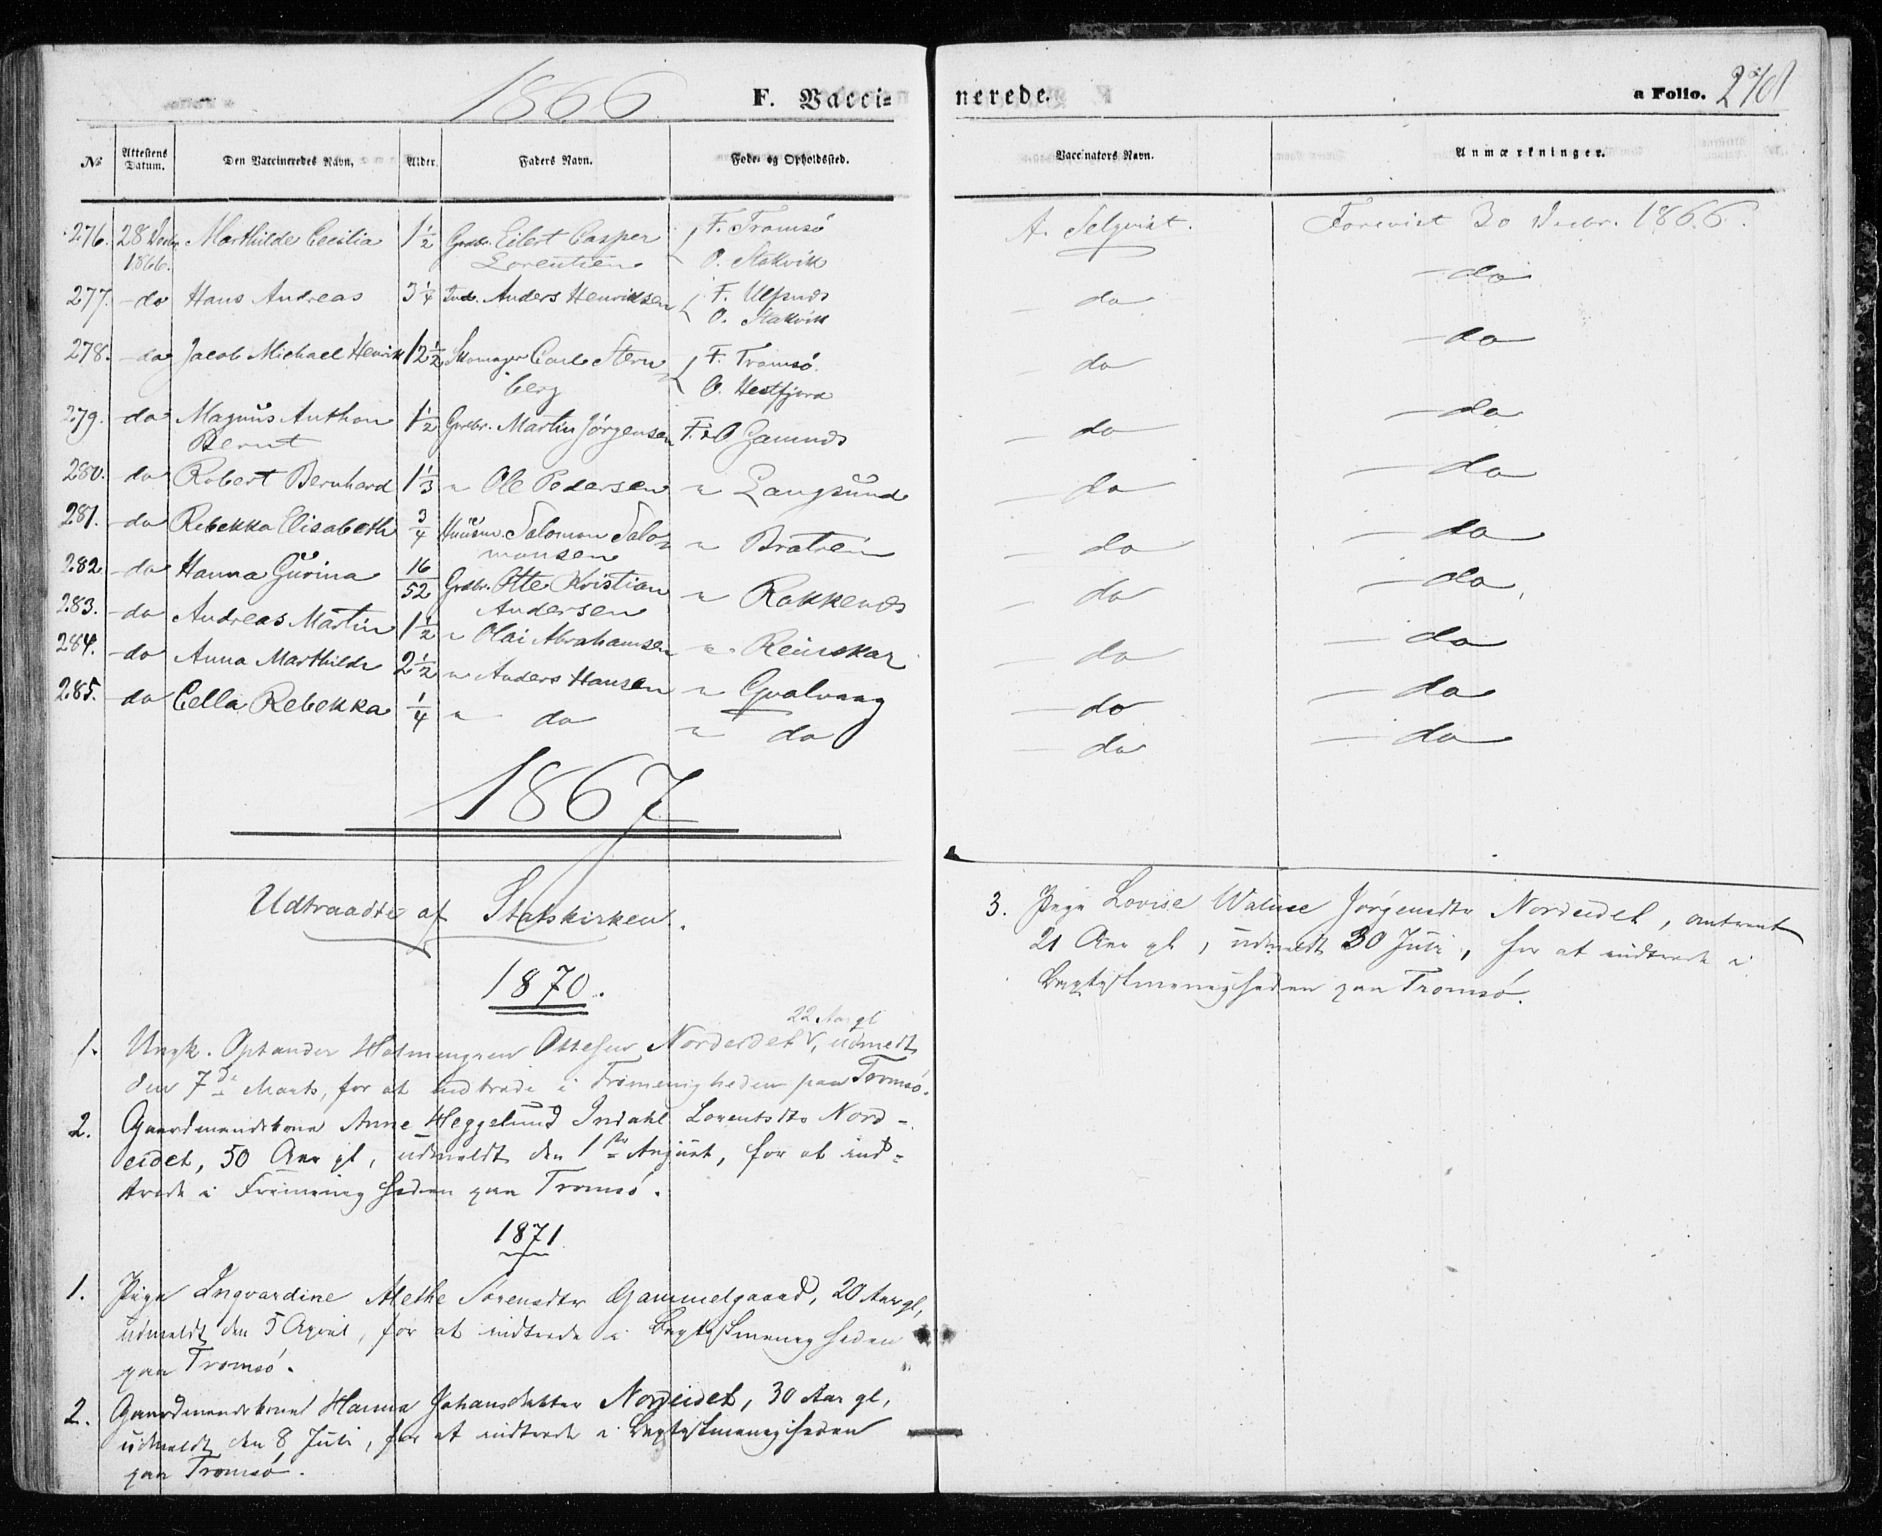 1866
F. Vacci=
nerede.
a Folio. 
№ Attestens Datum. Den Vaccineredes Navn. Alder. Faders Navn. Føde- og Opholdssted. Vaccinators Navn. Anmærkninger.
276. 28 Decbr 1866. Marthilde Cecilia 1½ Grdbr. Eilert Casper Lorentsen { F. Tromsø O. Stakvik A. Selqvist. Forevist 30 Decbr. 1866.
277. do Hans Andreas 3¼ Ind. Anders Henriksen { F. Ulfsnæs O. Stakvik do do
278. do Jacob Michael Henrik 12½ Skomager Carl Stern berg { F. Tromsø. O. Hestfjord do do
279. do Magnus Anthon Bernt 1½ Grdbr. Martin Jørgensen F. & O Gamnæs do do
280. do Robert Bernhard 1⅓ " Ole Pedersen " Langsund do do
281. do Rebekka Elisabeth ¾ Huusm. Salomon Salo= monsen " Bratrein do do
282. do Hanna Gurina 16/52 Grdbr. Otte Kristian Andersen " Rakkenæs do do.
283. do Andreas Martin 1½ " Olai Abrahamsen " Reinskar do do
284. do Anna Marthilde 2½ " Anders Hansen " Gvalvaag do do
285. do Cella Rebekka ¼ " do " do do do
1867
Udtraadte af Statskirken.
1870.
22 Aar gl
1. Ungk. Holmengreen Ottesen Nordeidet V, udmeldt
den 7de Marts, for at indtræde i Frimenigheden paa Tromsø.
2. Gaardmandskone Anne Heggelund Indahl Lorentsdtr Nord-
eidet, 50 Aar gl, udmeldt den 1ste August, for at ind=
træde i Frimenigheden paa Tromsø.
1871
1. Pige Ingvardine Alethe Sørensdtr Gammelgaard, 20 Aar gl,
udmeldt den 5 April, for at indtræde i Baptistmenigheden
paa Tromsø.
2. Gaardmandskone Hanna Johansdatter Nordeidet, 30 Aar gl,
udmeldt den 8 Juli, for at indtræde i Baptistmenigheden
paa Tromsø.
3. Pige Lovise Waline Jørgensdtr Nordeidet, omtrent
21 Aar gl, udmeldt 30 Juli, for at indtræde i
Baptistmenigheden paa Tromsø.